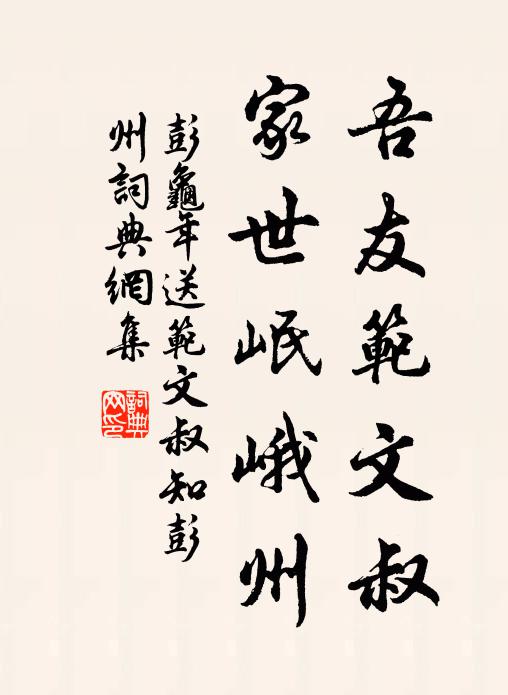 吾友範文叔
家世岷峨州
彭龜年送範文叔知彭
州詞典網集
詞典网印